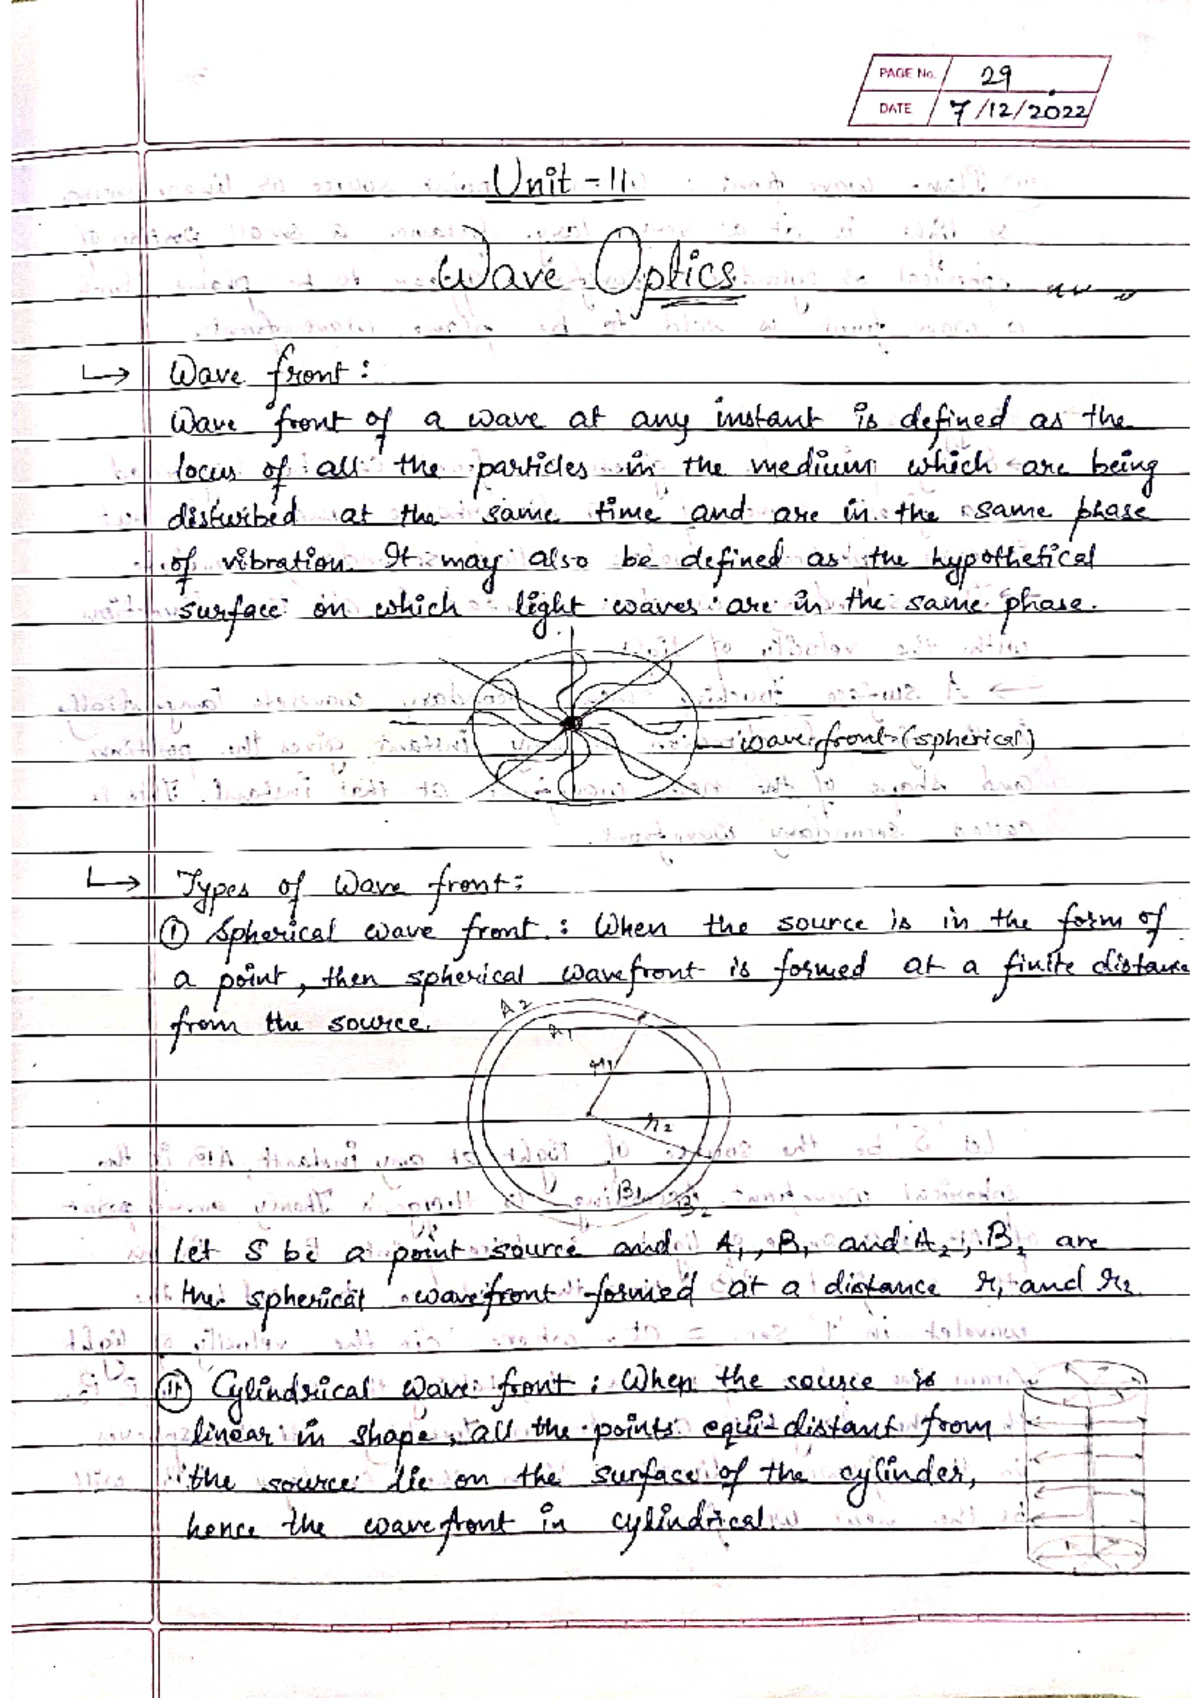 PAGE No. 29
DATE 7/12/2022
Unit - 11
Wave Optics
↳ Wave front :
Wave front of a wave at any instant is defined as the
locus of all the particles in the medium which are being
disturbed at the same time and are in the same phase
of vibration. It may also be defined as the hypothetical
surface on which light waves are in the same phase.
wave front (spherical)
↳ Types of Wave front :
① Spherical wave front : When the source is in the form of
a point, then spherical wavefront is formed at a finite distance
from the source.
A2
A1
r1
r2
B1
B2
Let S be a point source and A1, B1 and A2, B2 are
the spherical wavefront formed at a distance r1 and r2
(11) Cylindrical wave front : When the source is
linear in shape, all the points equi-distant from
the source lie on the surface of the cylinder,
hence the wavefront in cylindrical.